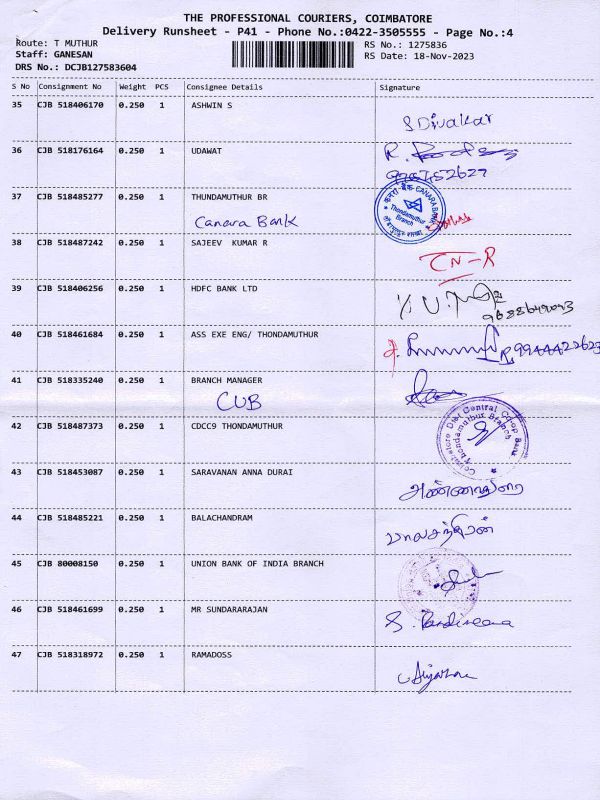 THE PROFESSIONAL COURIERS, COIMBATORE
Delivery Runsheet - P41 - Phone No.:0422-3505555 - Page No.:4
Route: T MUTHUR RS No.: 1275836
Staff: GANESAN RS Date: 18-Nov-2023
DRS No.: DCJB127583604
S No Consignment No Weight PCS Consignee Details Signature
35 CJB 518406170 0.250 1 ASHWIN S
S Divakar
36 CJB 518176164 0.250 1 UDAWAT
37 CJB 518485277 0.250 1 THUNDAMUTHUR BR
Canara Bank
केनरा बैंक CANARA BANK
Thondamuthur
Branch
38 CJB 518487242 0.250 1 SAJEEV KUMAR R
CN-R
39 CJB 518406256 0.250 1 HDFC BANK LTD
40 CJB 518461684 0.250 1 ASS EXE ENG/ THONDAMUTHUR
9944422623
41 CJB 518335240 0.250 1 BRANCH MANAGER
CUB
42 CJB 518487373 0.250 1 CDCC9 THONDAMUTHUR
Coimbatore Dist Central Co-op Bank
Thondamuthur Branch
43 CJB 518453087 0.250 1 SARAVANAN ANNA DURAI
அண்ணாதுரை
44 CJB 518485221 0.250 1 BALACHANDRAM
பாலசந்திரன்
45 CJB 80008150 0.250 1 UNION BANK OF INDIA BRANCH
46 CJB 518461699 0.250 1 MR SUNDARARAJAN
47 CJB 518318972 0.250 1 RAMADOSS